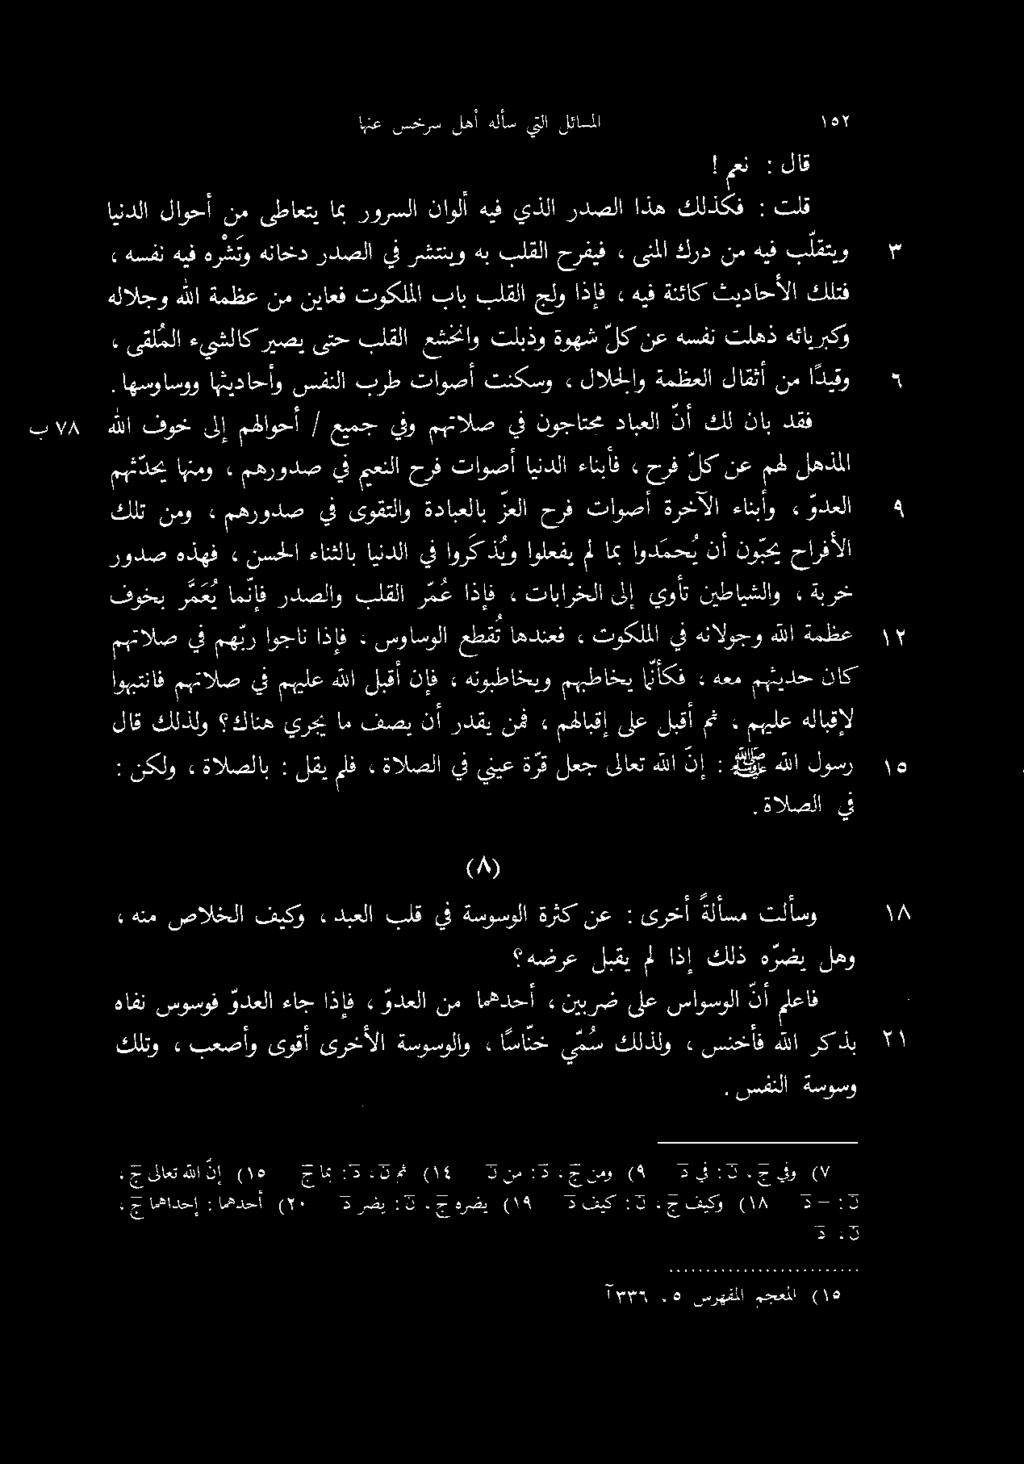 ١٥٢ المسائل التي سأله أهل سرخس عنها
قال : نعم !
قلت : فكذلك هذا الصدر الذي فيه ألوان السرور بما يتعاطى من أحوال الدنيا
٣ ويتقلّب فيه من درك المنى ، فيفرح القلب به وينتشر في الصدر دخانه وتَشْرَه فيه نفسه ،
فتلك الأحاديث كائنة فيه ، فإذا ولج القلب باب الملكوت فعاين من عظمة الله وجلاله
وكبريائه ذهلت نفسه عن كلّ شهوة وذبلت وانخشع القلب حتى يصير كالشيء المُلقى ،
٦ وقيدًا من أثقال العظمة والجلال ، وسكنت أصوات طرب النفس وأحاديثها ووساوسها .
فقد بان لك أنّ العباد محتاجون في صلاتهم وفي جميع / أحوالهم إلى خوف الله ٧٨ ب
المذهل لهم عن كلّ فرح ، فأبناء الدنيا أصوات فرح النعيم في صدورهم ، ومنها يحدّثهم
٩ العدوّ ، وأبناء الآخرة أصوات فرح العزّ بالعبادة والتقوى في صدورهم ، ومن تلك
الأفراح يحبّون أن يُحمَدوا بما لم يفعلوا ويُذكَروا في الدنيا بالثناء الحسن ، فهذه صدور
خربة ، والشياطين تأوي إلى الخرابات ، فإذا عُمّر القلب والصدر فإنّما يُعَمَّر بخوف
١٢ عظمة الله وجولانه في الملكوت ، فعندها تُقطع الوساوس ، فإذا ناجوا ربّهم في صلاتهم
كان حديثهم معه ، فكأنّما يخاطبهم ويخاطبونه ، فإن أقبل الله عليهم في صلاتهم فانتبهوا
لإقباله عليهم ، ثم أقبل على إقبالهم ، فمن يقدر أن يصف ما يجري هناك؟ ولذلك قال
١٥ رسول الله ﷺ : إنّ الله تعالى جعل قرّة عيني في الصلاة ، فلم يقل : بالصلاة ، ولكن :
في الصلاة .
(٨)
١٨ وسألت مسألةً أخرى : عن كثرة الوسوسة في قلب العبد ، وكيف الخلاص منه ،
وهل يضرّه ذلك إذا لم يقبل عرضه ؟
فاعلم أنّ الوسواس على ضربين ، أحدهما من العدوّ ، فإذا جاء العدوّ فوسوس نفاه
٢١ بذكر الله فأخنس ، ولذلك سُمّي خنّاسًا ، والوسوسة الأخرى أقوى وأصعب ، وتلك
وسوسة النفس .
٧) وفي ج ، ن : في د ٩) ومن ج ، د : من ن ١٤) ثم ن ، د : بما ج ١٥) إنّ الله تعالى ج ،
ن : – د ١٨) وكيف ج ، ن : كيف د ١٩) يضره ج ، ن : يضر د ٢٠) أحدهما : إحداهما ج ،
ن ، د
١٥) المعجم المفهرس ٥ ، ٣٣٦آ